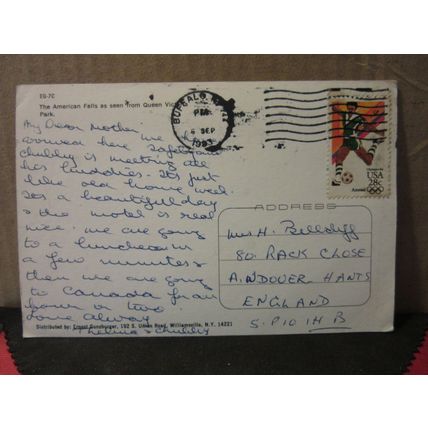 EG-7C
The American Falls as seen from Queen Vic
Park.
BUFFALO, N.Y.
PM
6 SEP
USA
28c
My Dear Mother
here we have
arrived here safely and
Chubby is meeting all
his buddies. Its just
like old home week.
Its a beautiful day
& the motel is real
nice. We are going
to a luncheon in
a few minutes
then we are going
to Canada for an
hour or two.
love always
Thelma & Chubby
ADDRESS
Mrs H.
80 RACK CLOSE
ANDOVER HANTS
ENGLAND
S.P10 1H B
Distributed by: Ernest Gunzburger, 192 S. Union Road, Williamsville, N.Y. 14221